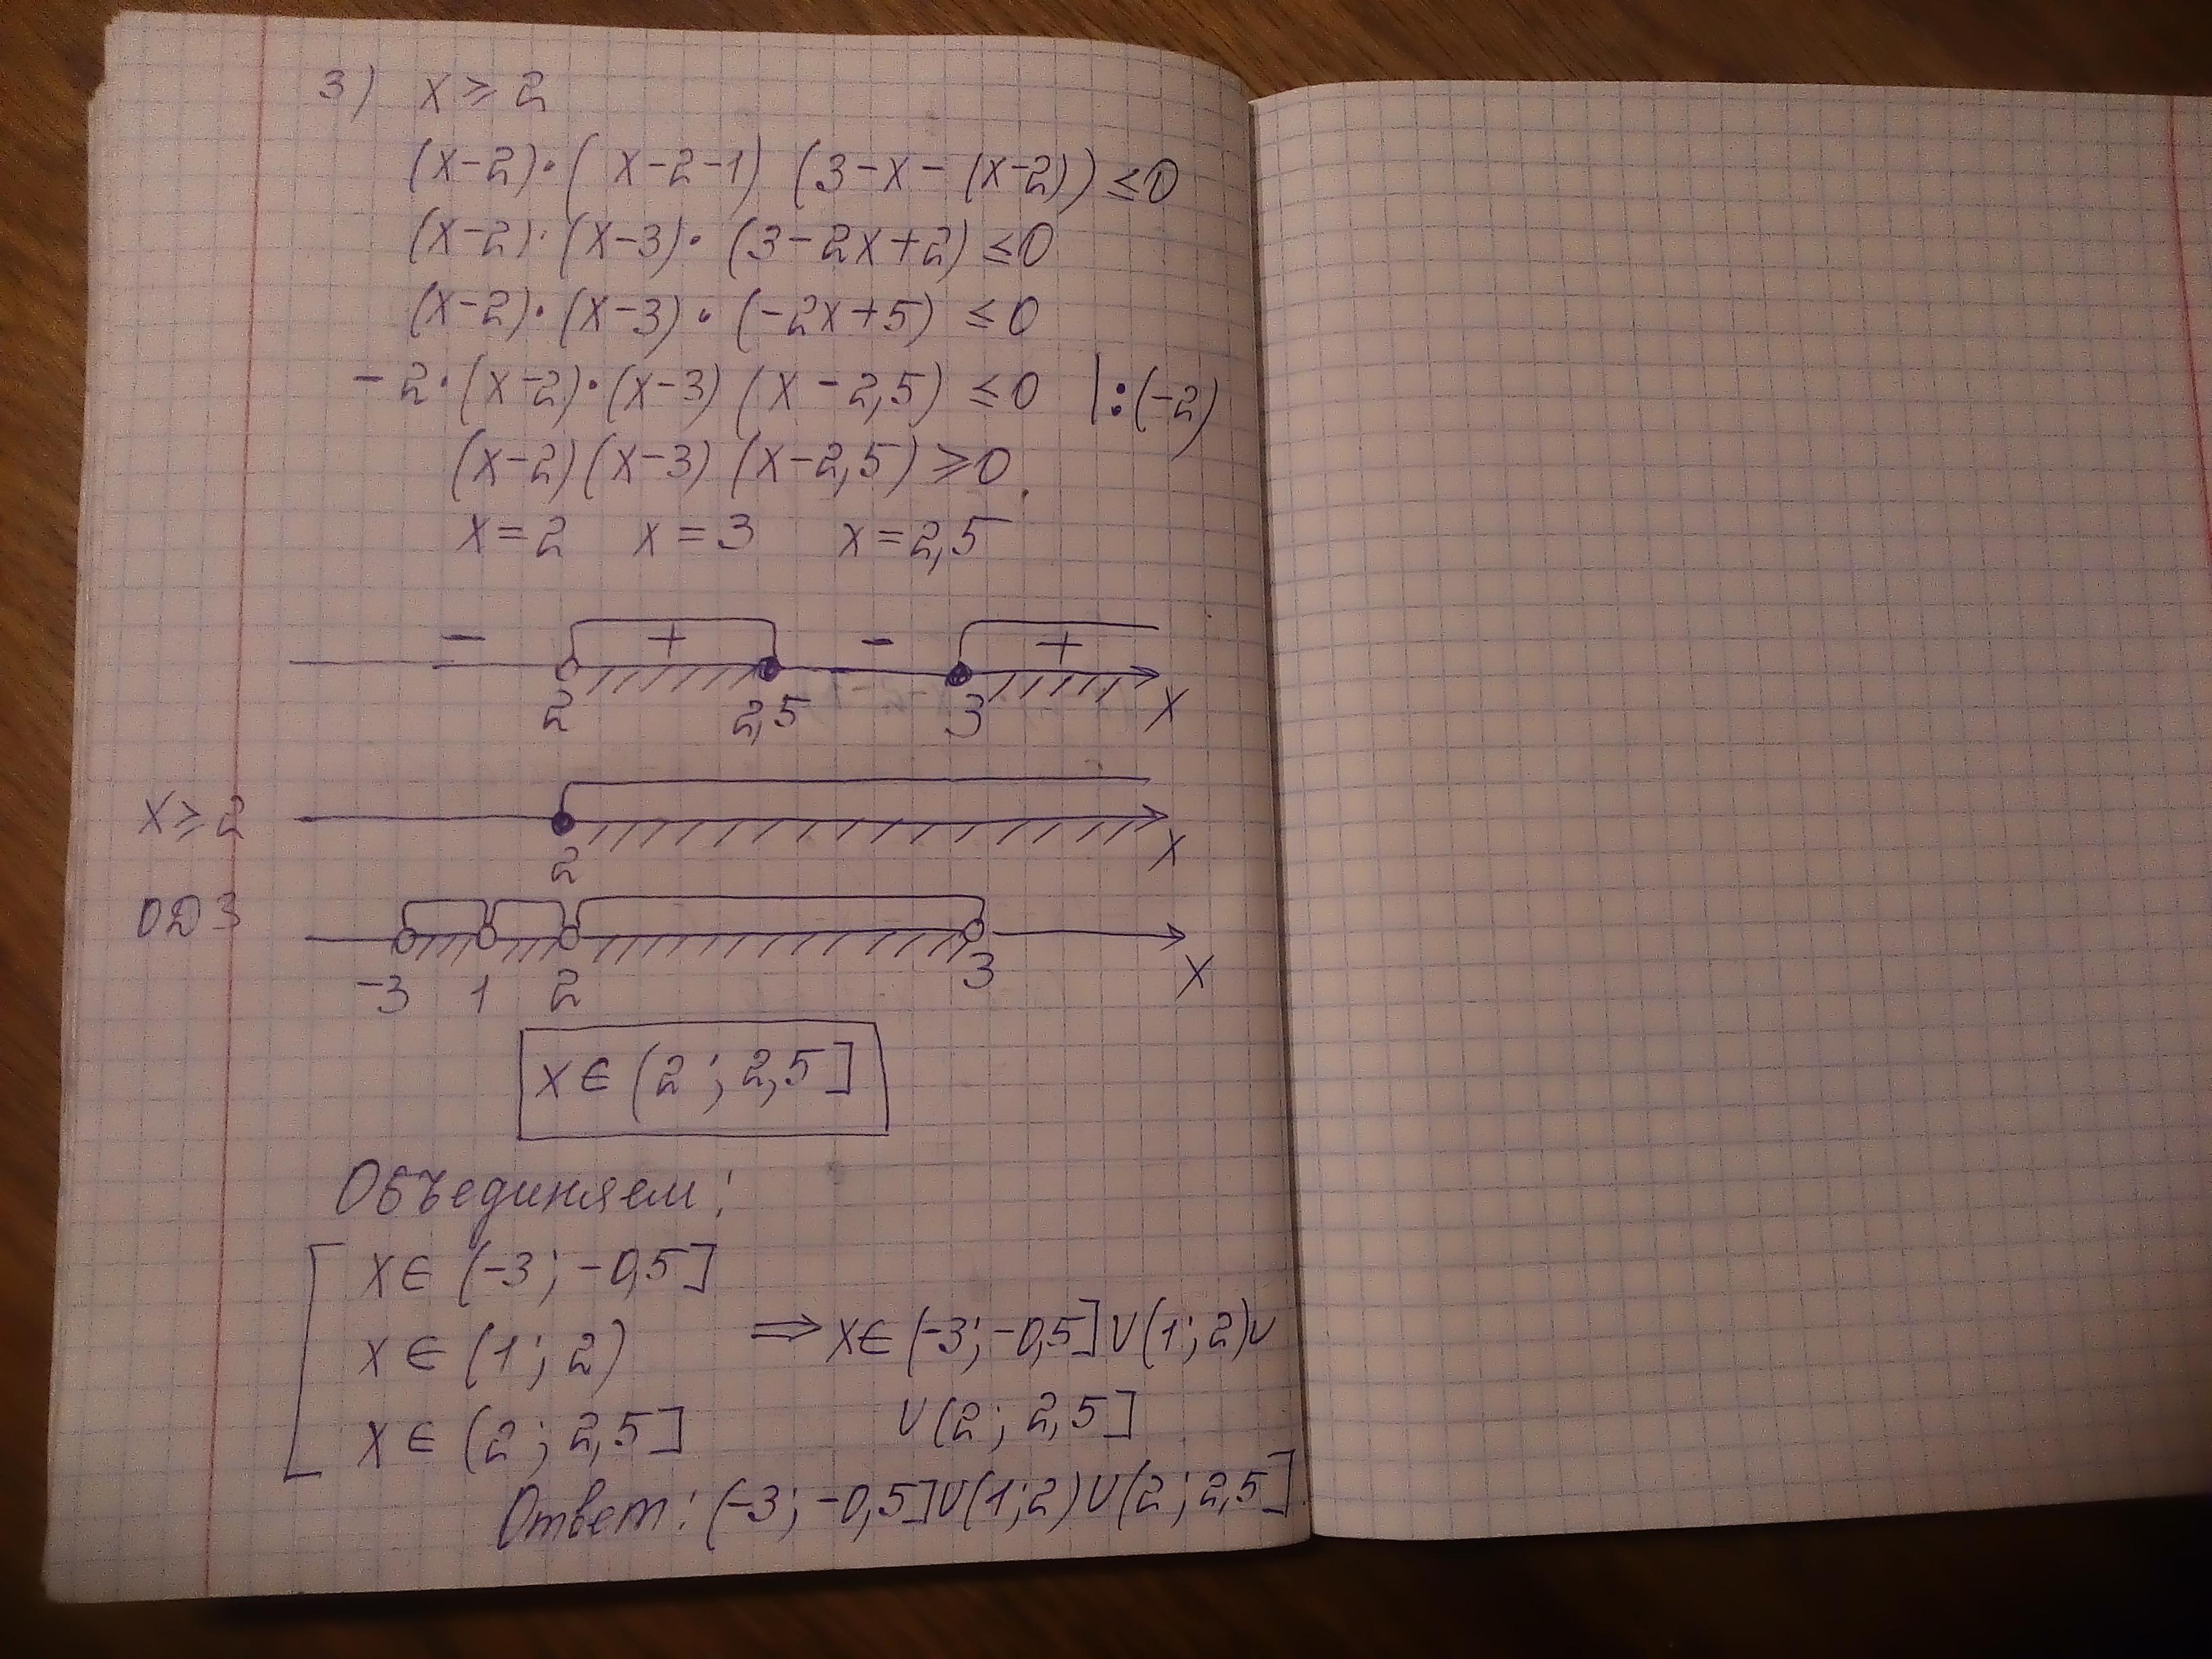 3) x ≥ 2
(x-2)·(x-2-1)(3-x-(x-2)) ≤ 0
(x-2)·(x-3)·(3-2x+2) ≤ 0
(x-2)·(x-3)·(-2x+5) ≤ 0
-2·(x-2)·(x-3)(x-2,5) ≤ 0 |:(-2)
(x-2)(x-3)(x-2,5) ≥ 0
x=2 x=3 x=2,5
- + - +
2 2,5 3 x
x ≥ 2
2 x
ОДЗ
-3 1 2 3 x
x ∈ (2; 2,5]
Объединяем:
x ∈ (-3; -0,5]
x ∈ (1; 2) ⇒ x ∈ (-3; -0,5] ∪ (1; 2) ∪
x ∈ (2; 2,5] ∪ (2; 2,5]
Ответ: (-3; -0,5] ∪ (1; 2) ∪ (2; 2,5]